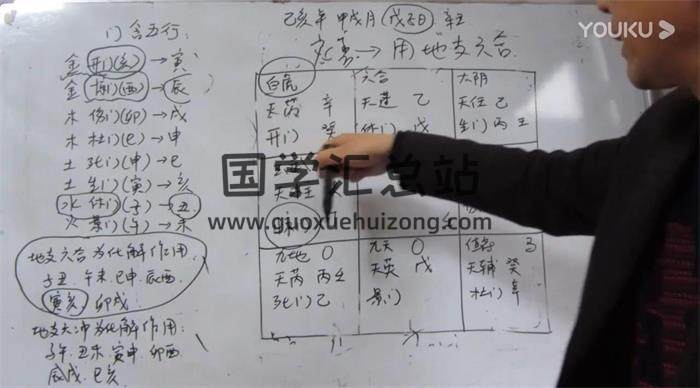 YOUKU
门含五行:
己亥年 甲戌月 戊子日 辛
金 开门(亥)→寅
应象→用地支六合
金 惊门(酉)→辰
木 伤门(卯)→戌
木 杜门(巳)→申
土 死门(申)→巳
土 生门(寅)→亥
水 休门(子)→丑
火 景门(午)→未
地支六合为化解作用
子丑 午未 巳申 辰酉
寅亥 卯戌
地支六冲为化解作用:
子午 丑未 寅申 卯酉
辰戌 巳亥
白虎
天芮 辛
开门 癸
六合
天蓬 乙
休门 戊
太阴
天任 己
生门 丙
九地 O
天芮 丙
死门 乙
九天 O
天英 戊
景门
值符 马
天辅 癸
杜门
国学汇总站
www.guoxuehuizong.com